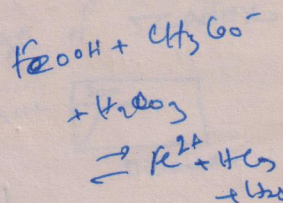 FeOOH + CH3COO-
+ H2CO3
⇌ Fe2+ + HCO3
+ H2O